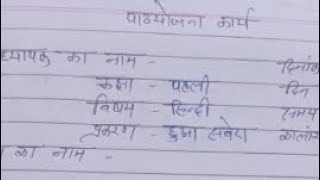 पाठयोजना कार्य
ध्यापक का नाम - दिनांक
कक्षा - पहली दिन
विषय - हिन्दी समय
प्रकरण - हुआ सवेरा कालां
का नाम -